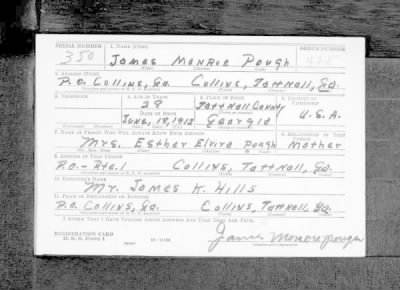 SERIAL NUMBER 1. NAME (Print) ORDER NUMBER
350 James Monroe Pough
(First) (Middle) (Last)
2. ADDRESS (Print)
P.O. Collins, Ga. Collins, Tattnall, Ga.
3. TELEPHONE 4. AGE IN YEARS 5. PLACE OF BIRTH 6. COUNTRY OF CITIZENSHIP
28 Tattnall County
DATE OF BIRTH
June, 18, 1912 Georgia U.S.A.
7. NAME OF PERSON WHO WILL ALWAYS KNOW YOUR ADDRESS 8. RELATIONSHIP OF THAT PERSON
Mrs. Esther Elvira Pough Mother
9. ADDRESS OF THAT PERSON
P.O.- Rte. 1 Collins, Tattnall, Ga.
10. EMPLOYER'S NAME
Mr. James K. Hills
11. PLACE OF EMPLOYMENT OR BUSINESS
P.O. Collins, Ga. Collins, Tattnall, Ga.
I AFFIRM THAT I HAVE VERIFIED ABOVE ANSWERS AND THAT THEY ARE TRUE.
REGISTRATION CARD
D. S. S. Form 1
James Monroe Pough